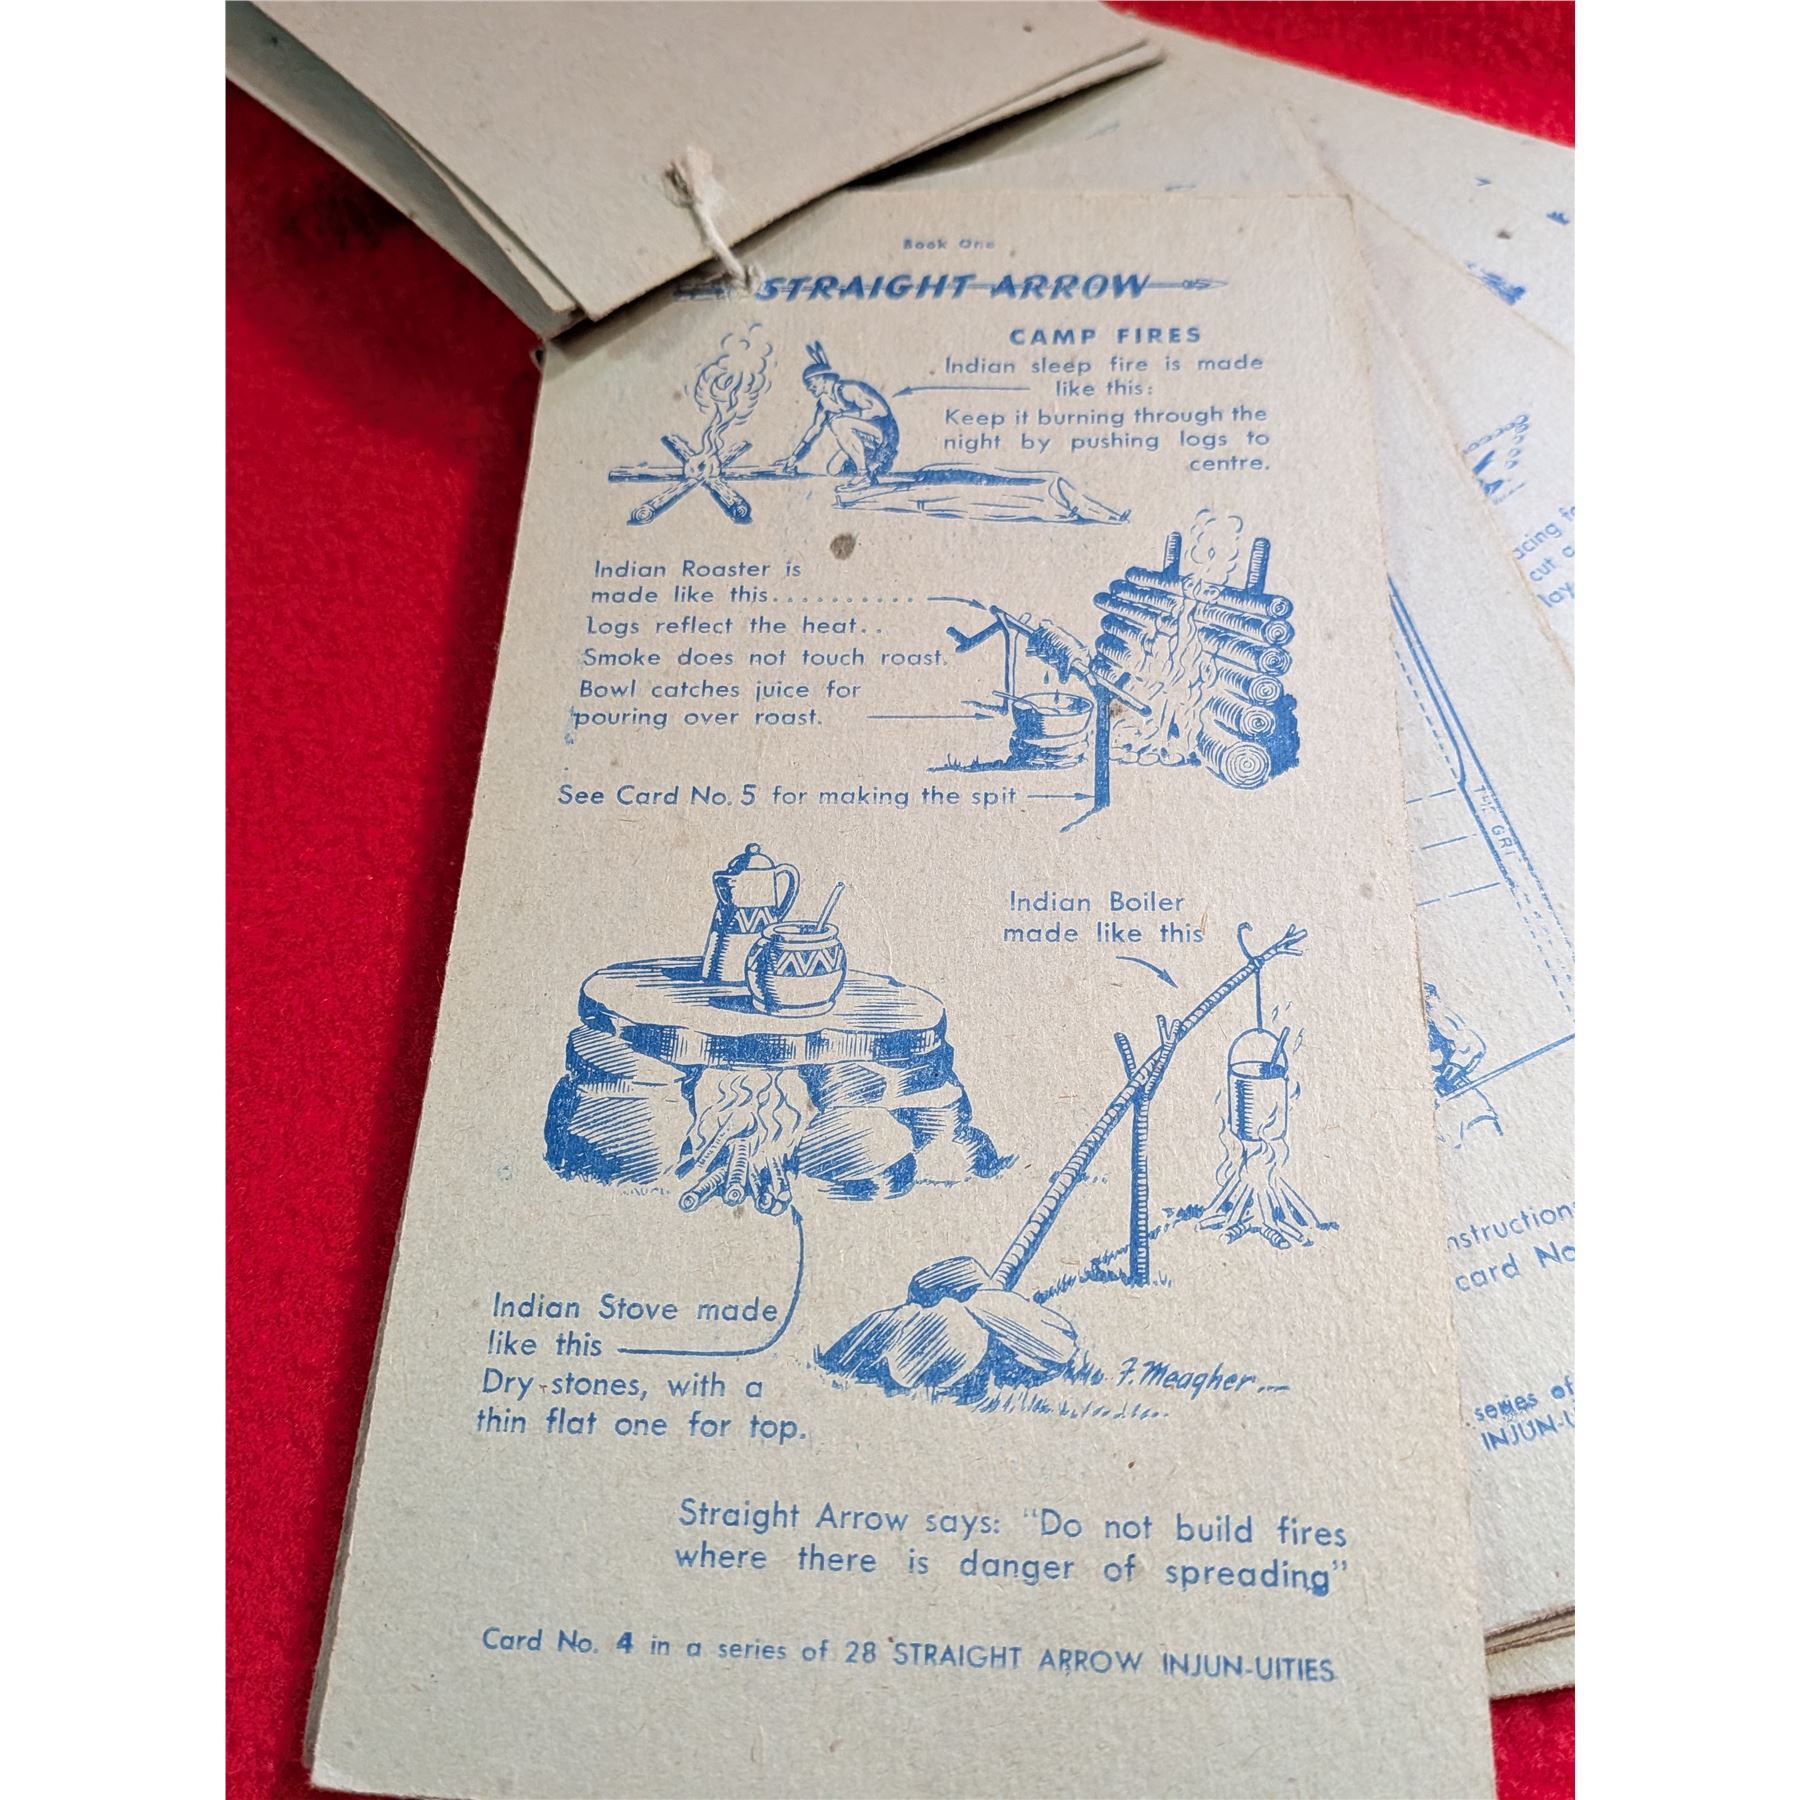 Book One
STRAIGHT ARROW
CAMP FIRES
Indian sleep fire is made
like this:
Keep it burning through the
night by pushing logs to
centre.
Indian Roaster is
made like this..........
Logs reflect the heat..
Smoke does not touch roast.
Bowl catches juice for
pouring over roast.
See Card No. 5 for making the spit
Indian Boiler
made like this
Indian Stove made
like this
Dry stones, with a
thin flat one for top.
F. Meagher
Straight Arrow says: "Do not build fires
where there is danger of spreading"
Card No. 4 in a series of 28 STRAIGHT ARROW INJUN-UITIES
cut
THE GRI
card No
series of